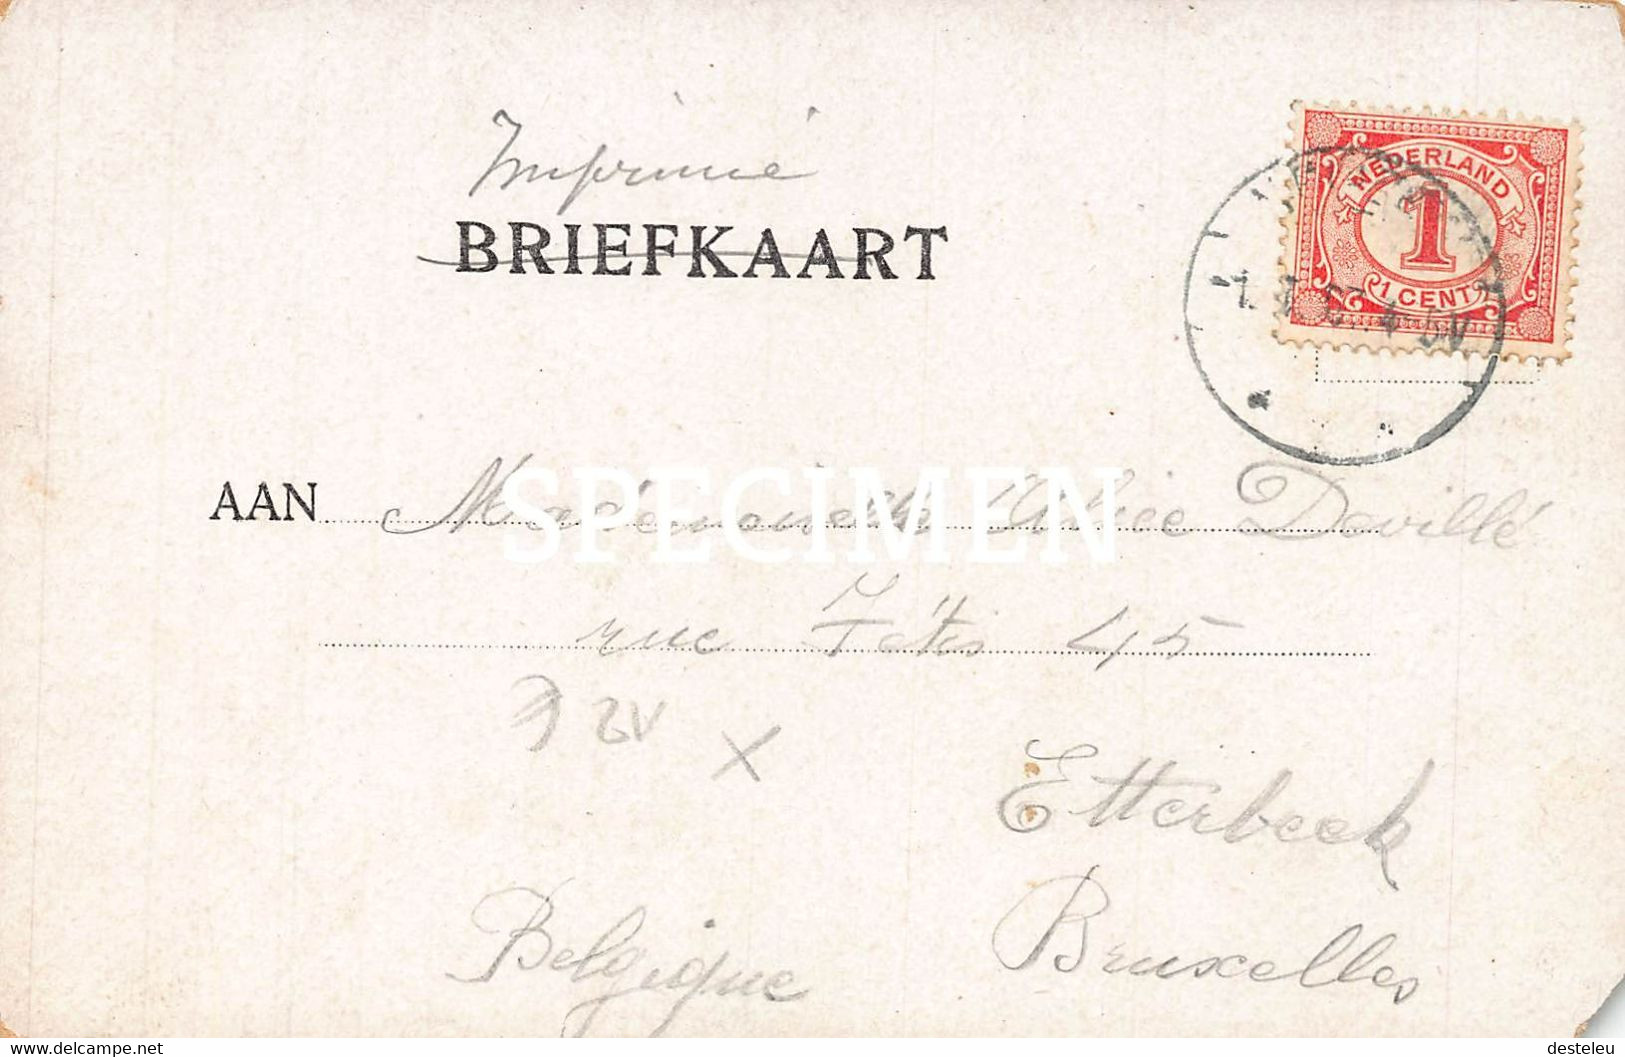 Imprimé
BRIEFKAART
NEDERLAND
1
1 CENT
4-5N
AAN Mademoiselle Alice Devillé
SPECIMEN
rue Fétis 45
X
Etterbeek
Bruxelles
Belgique
www.delcampe.net
desteleu